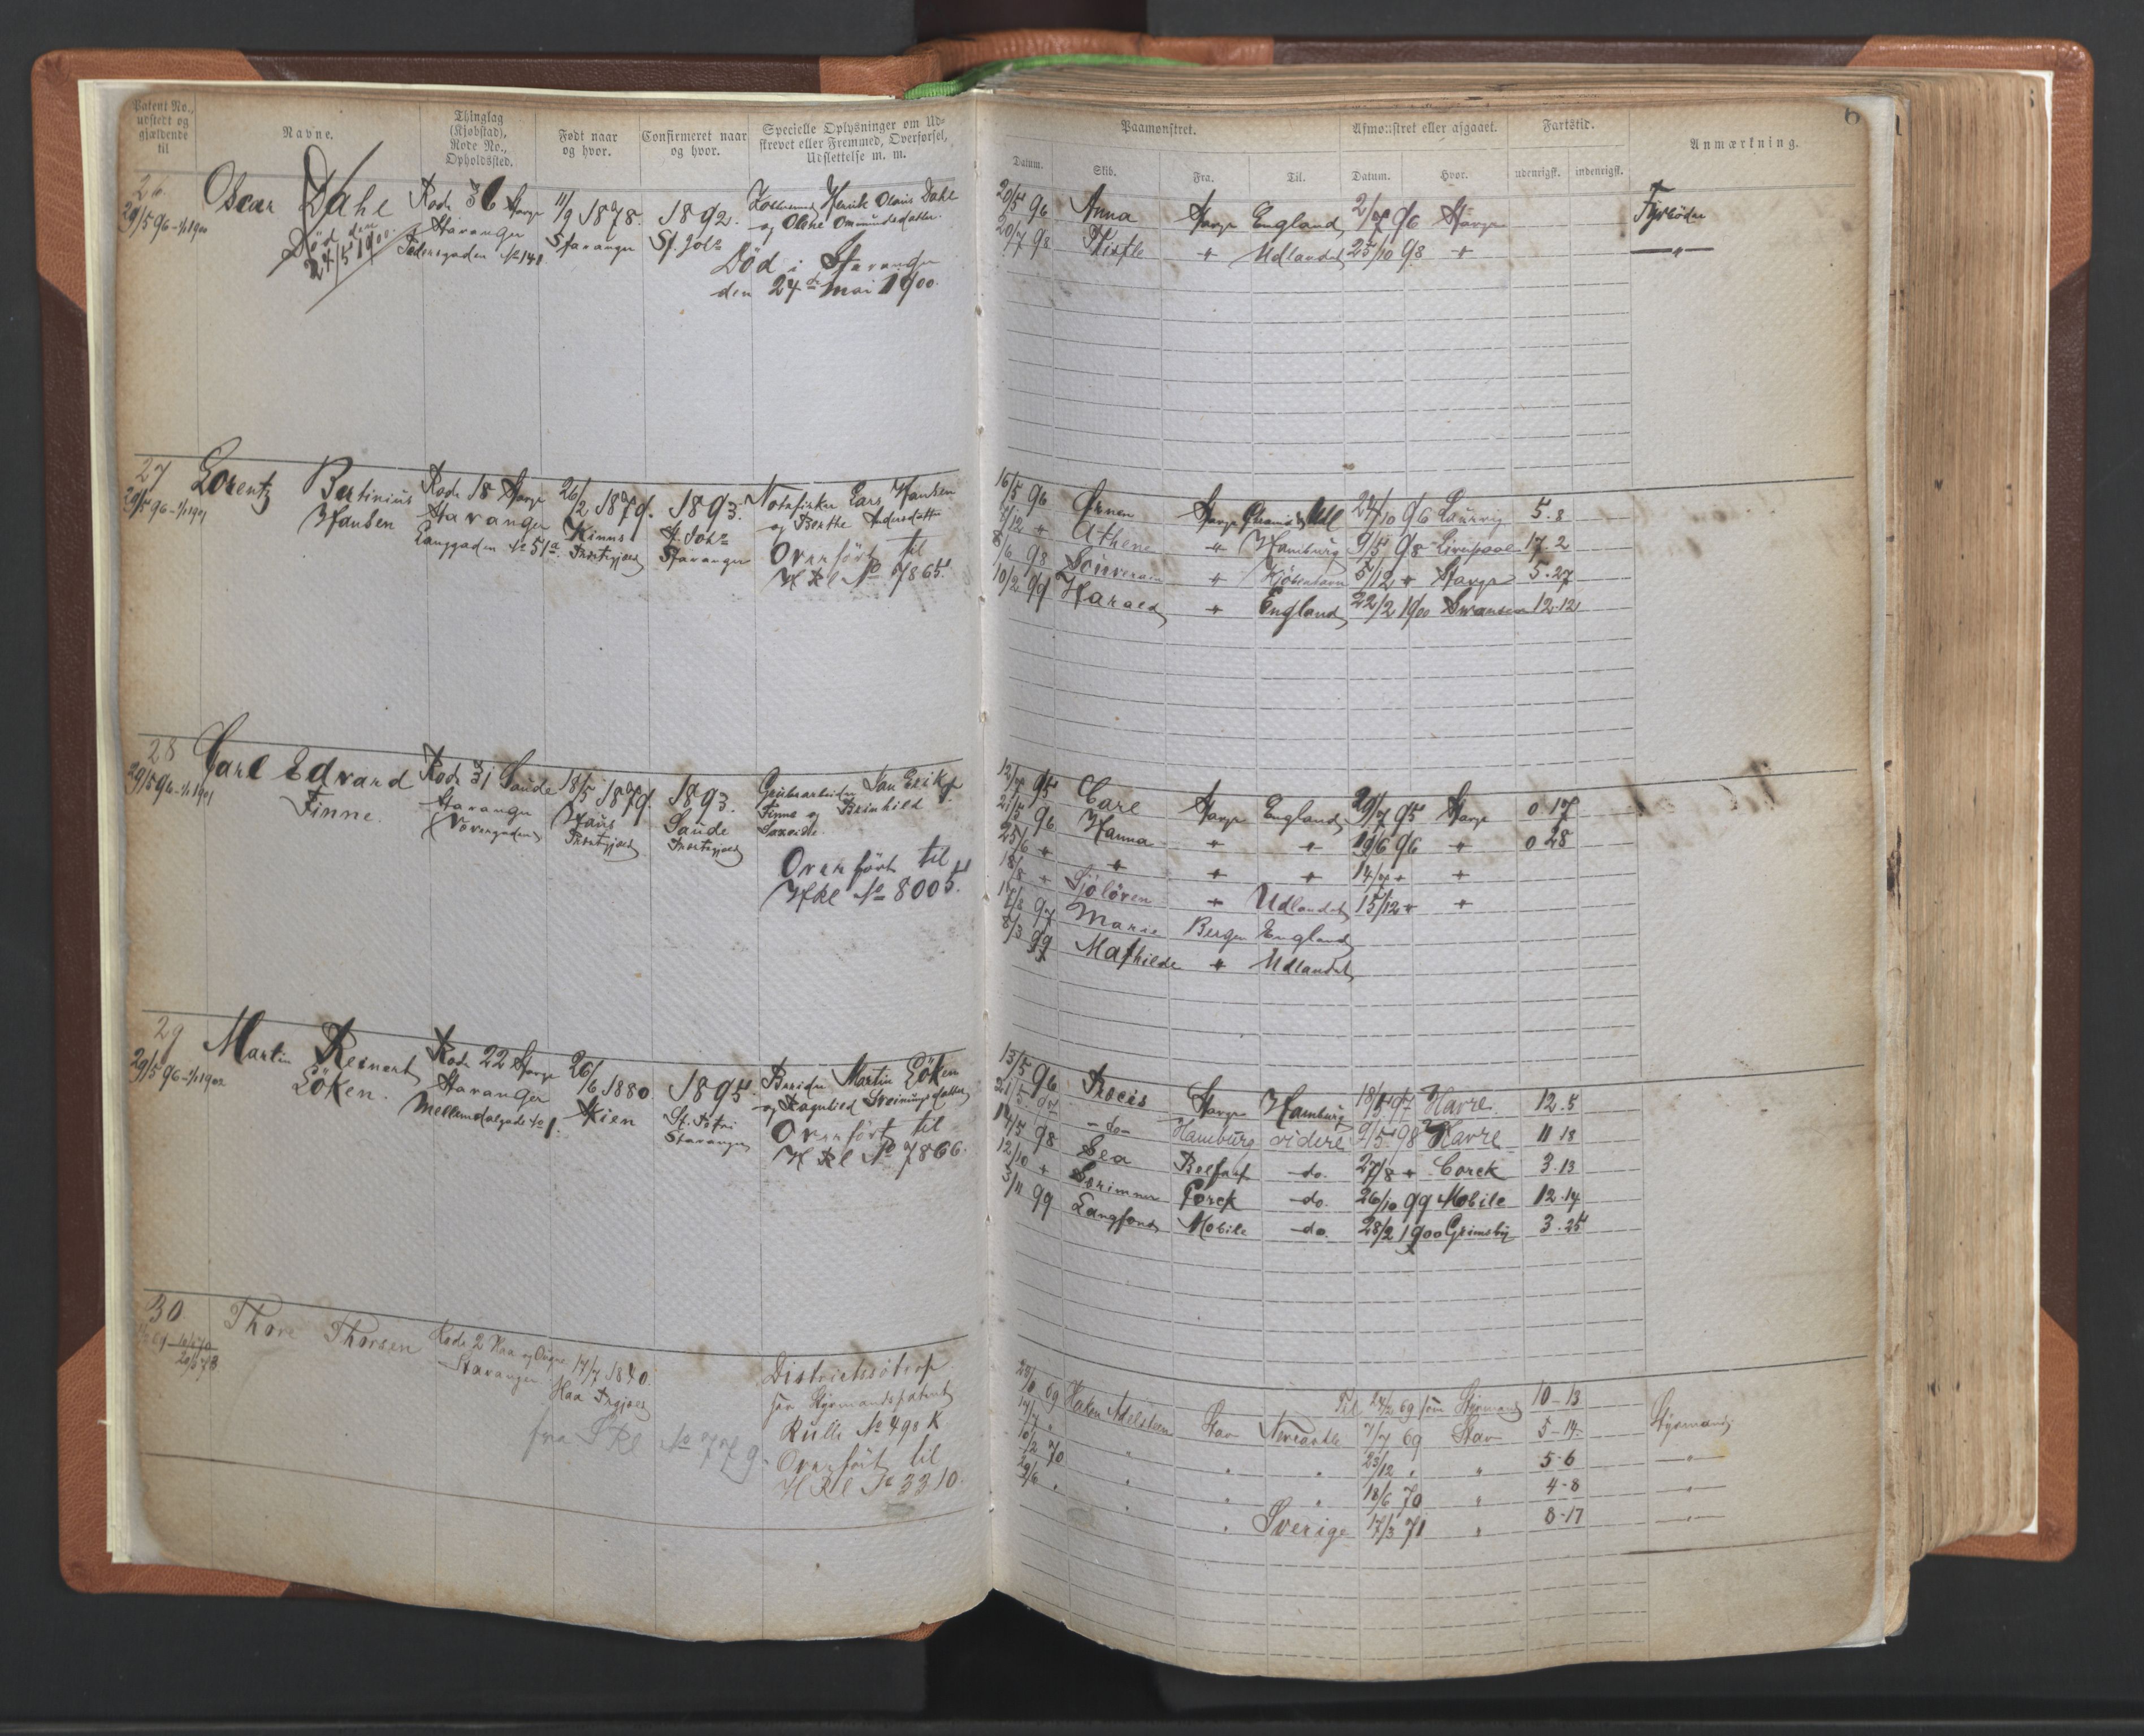 Patent No., udstedt og gjældende til
Navne.
Thinglag (Kjøbstad), Rode No., Opholdssted.
Født naar og hvor.
Confirmeret naar og hvor.
Specielle Oplysninger om Udskrevet eller Fremmed, Overførsel, Udslettelse m. m.
Paamønstret.
Afmønstret eller afgaaet.
Fartstid.
Anmærkning.
6
Datum.
Skib.
Fra.
Til.
Datum.
Hvor.
udenrigsk.
indenrigsk.
26
29/5 96 - 1/1 1900
Oscar Dahl
Død den
24/5 1900.
Rode 36 Stavgr
Stavanger
Pedersgaden No 141
11/9 1878.
Stavanger
1892.
St. Joh=
Henrik Olaus Dahl
og Oline Omundsdatter.
Död i Stavanger
den 24de Mai 1900.
20/5 96 Anna Stavgr England 2/7 96 Stavgr Fyrböder
20/7 98 " Udlandet 25/10 98 " — " —
27
29/5 96 - 1/1 1901
Lorentz Bertinius
Hansen
Rode 18 Stavgr
Stavanger
Langgaden No 51a.
26/2 1879.
Kinns
Præstegjæld
1893.
St. Joh=
Stavanger
Notafisker Lars Hansen
og Berthe Andersdatter
Overfört til
H Rl No 7865.
16/5 96 Ørnen Stavgr 24/10 96 5. 8
/12 " Athene " Hamburg 9/5 98 Liverpool 17. 2
/6 98 Souverain " Kjöbenhavn 5/12 " Stavgr 5.27
10/2 99 Harald " England 22/2 1900 Swansea 12.12
28
29/5 96 - 1/1 1901
Carl Edvard
Finne.
Rode 31 Saude
Stavanger
18/5 1879.
Præstegjæld
1893.
Saude
Præstegjæld
Grubearbeider Jan Erik
Finne og Brinhild
Overfört til
H Rl No 8005.
12/7 95 Carl Stavgr England 29/7 95 Stavgr 0 17
21/5 96 Hanna " " 19/6 96 " 0 28
25/6 " " " " 14/7 " "
18/8 " Sjölöven " Udlandet 15/12 " "
97 Marie Bergen England
8/3 99 Mathilde " Udlandet
29
29/5 96 - 1/1 1902
Martin Reinert
Löken.
Rode 22 Stavgr
Stavanger
Mellemdalgade No 1.
26/6 1880
Skien
1895.
St. Petri
Stavanger
Bereder Martin Löken
og Ragnhild Sveinungsdatter
Overfört til
H Rl No 7866.
13/5 96 Stavgr Hamburg 18/5 97 Havre 12.5
21/5 97 -do- Hamburg videre 9/5 98 Havre 11 18
14/5 98 Sea Belfast -do. 27/8 " Corck 3.13
12/10 " Scrimner Corck -do. 26/10 99 Mobile 12.14
3/11 99 Langfond Mobile -do. 28/2 1900 Grimsby 3.25
30
20/5 78
Thore Thorsen
Rode 2 Haa og Ogne
Stavanger
14/7 1840.
Haa Prgjæld
fra S Rl No 779.
Districtssötrop.
har Styrmandspatent
Rulle No 498 K
Overfört til
H Rl No 3310.
Til 24/2 69 som Styrmand 10-13
69 Hakon Adelsteen Stav Newcastle 7/7 69 Stav 5-14 Styrmand
" " " 23/12 " " 5-6 — " —
/2 70 " " " 18/6 70 " 4-8 — " —
29/6 " " " Sverige 17/3 71 " 8-17 — " —